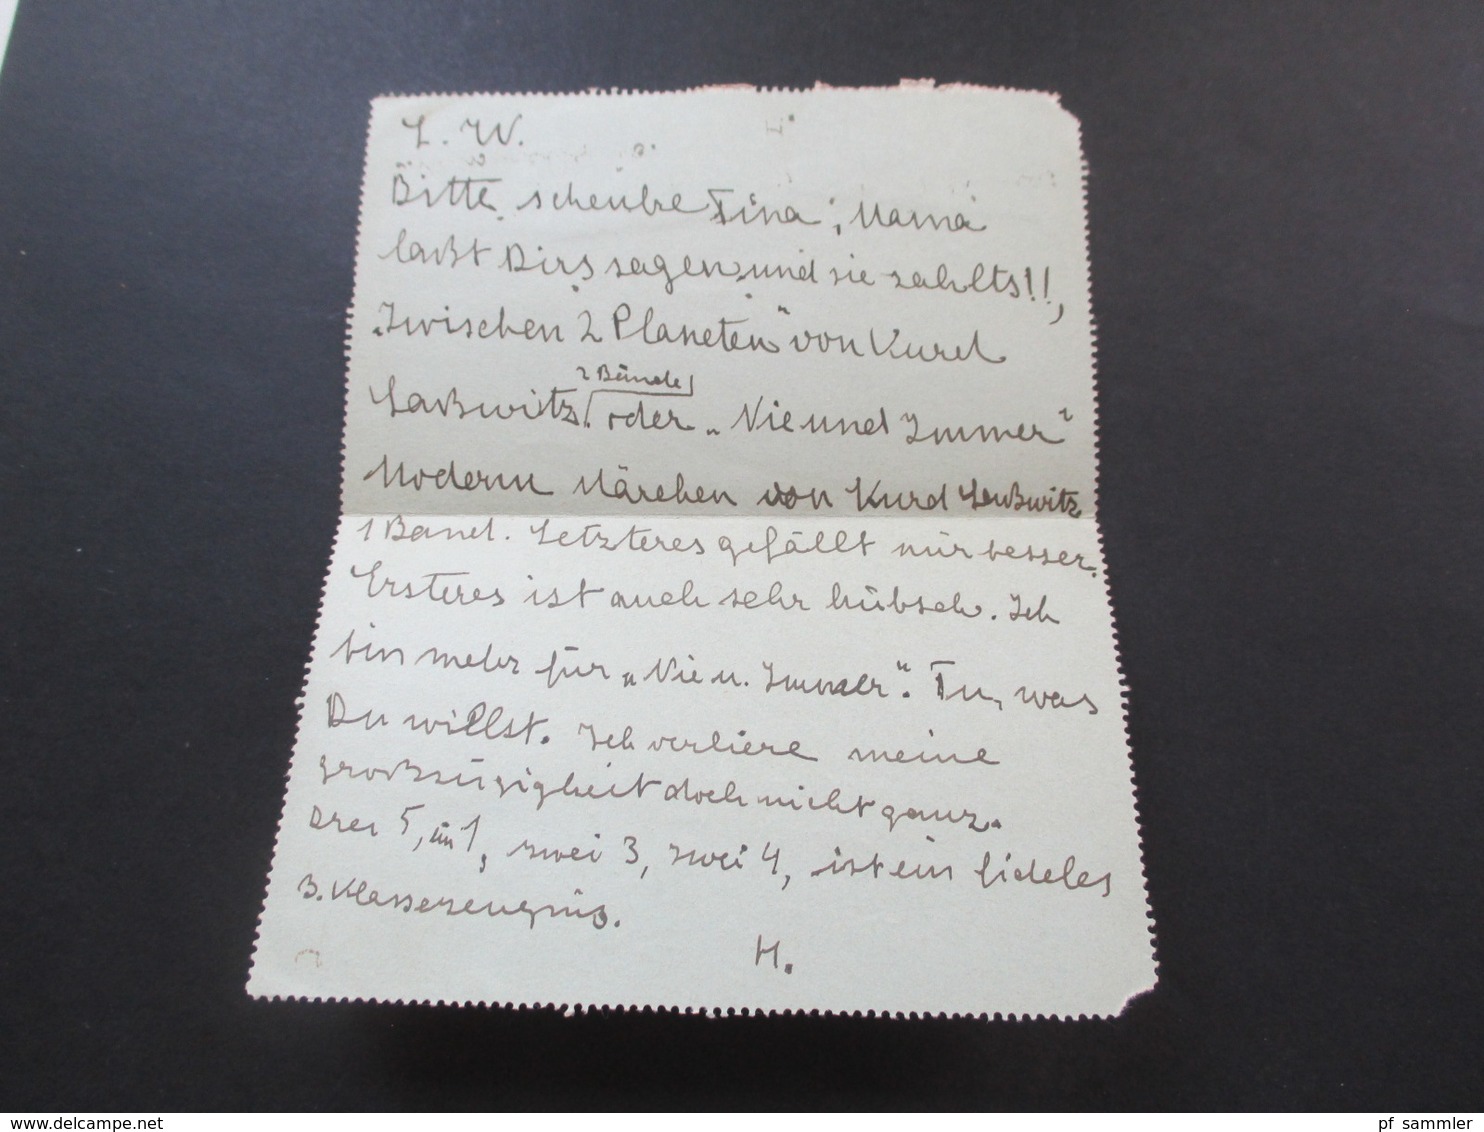 L. W.
Bitte schenke Tina, Mama
laßt Dirs sagen und sie zahlts!!,
„Zwischen 2 Planeten" von Kurd
Laßwitz. 2 Bände oder „Nie und Immer"
Modern Märchen von Kurd Laßwitz
1 Band. Letzteres gefällt mir besser.
Ersteres ist auch sehr hübsch. Ich
bin mehr für „Nie u. Immer". Tu, was
Du willst. Ich verliere meine
großzügigkeit doch nicht ganz.
Drei 5, 1, zwei 3, zwei 4, ist ein fideles
3. Klassezeugnis.
H.
pf_sammler
www.delcampe.net